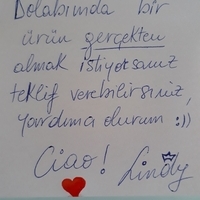 Dolabımda bir
ürün gerçekten
almak istiyorsanız
teklif verebilirsiniz,
yardımcı olurum :))
Ciao! Lindy